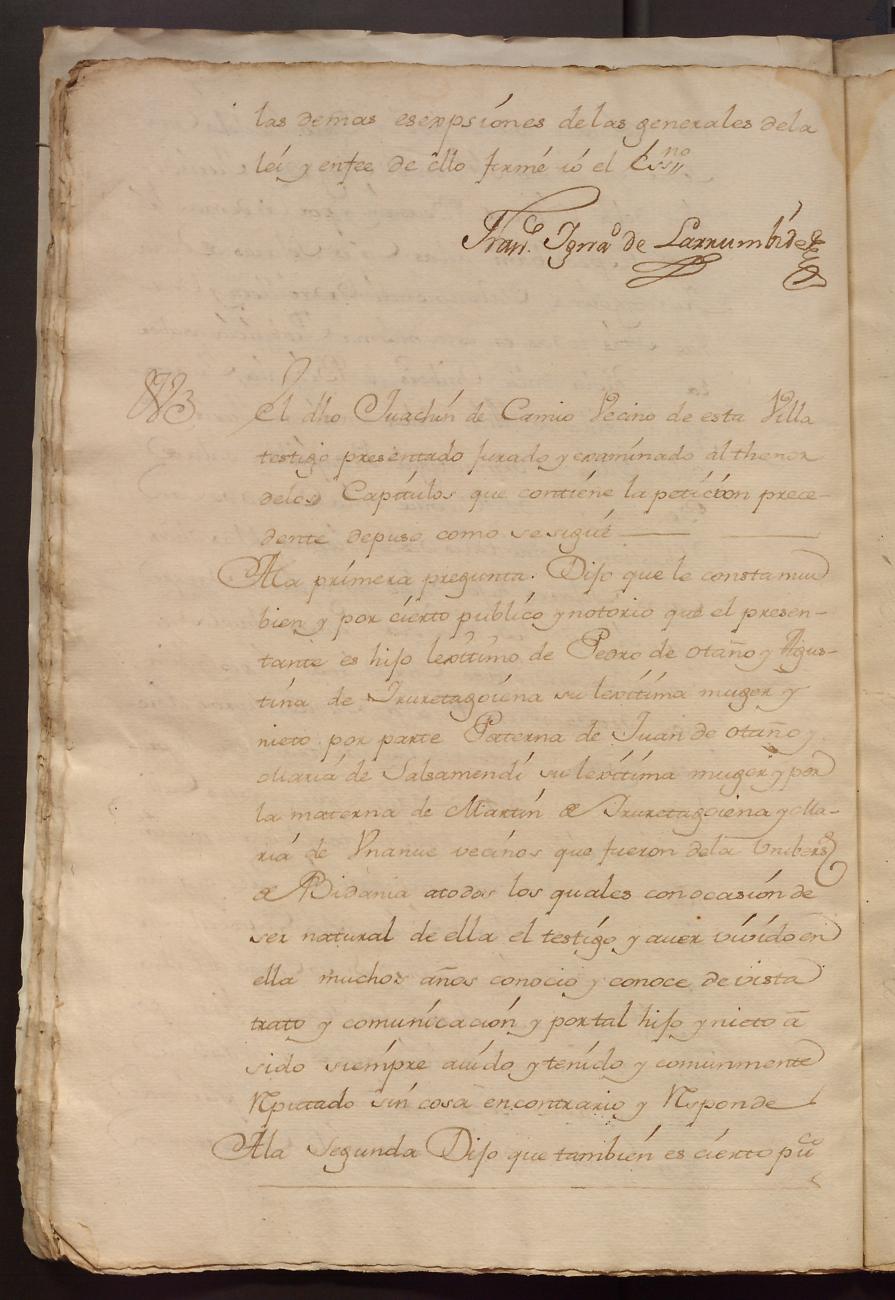 las demas esexpsiónes de las generales dela
leí y enfee de ello firmé ió el Essno
Franco. Ignao de Larrumbíde
El dho Juachin de Camio Vecino de esta Villa
testigo presentado jurado y examínado al thenor
delos Capítulos que contiéne la petición prece-
dente depuso como se sigué
Ala prímera pregunta. Dijo que le consta mui
bien y por ciérto publíco y notorio que el presen-
tante es hijo lexítimo de Pedro de otaño y Agus-
tína de Iruretagoiéna su lexítima muger y
nieto por parte Paterna de Juan de otaño y
Maria de Salsamendí su lexítima muger y por
la materna de Martín de Iruretagoiena y Ma-
ría de Vnanue vecínos que fueron dela Vnibersd
de Bidania atodos los quales con ocasión de
ser natural de ella el testígo y auer vivído en
ella muchos años conocio y conoce de vista
trato y comunícación y por tal hijo y nieto ā
sido siempre auido y tenído y comunmente
Rputado sin cosa en contrario y Rsponde
Ala Segunda Dijo que también es ciérto puco